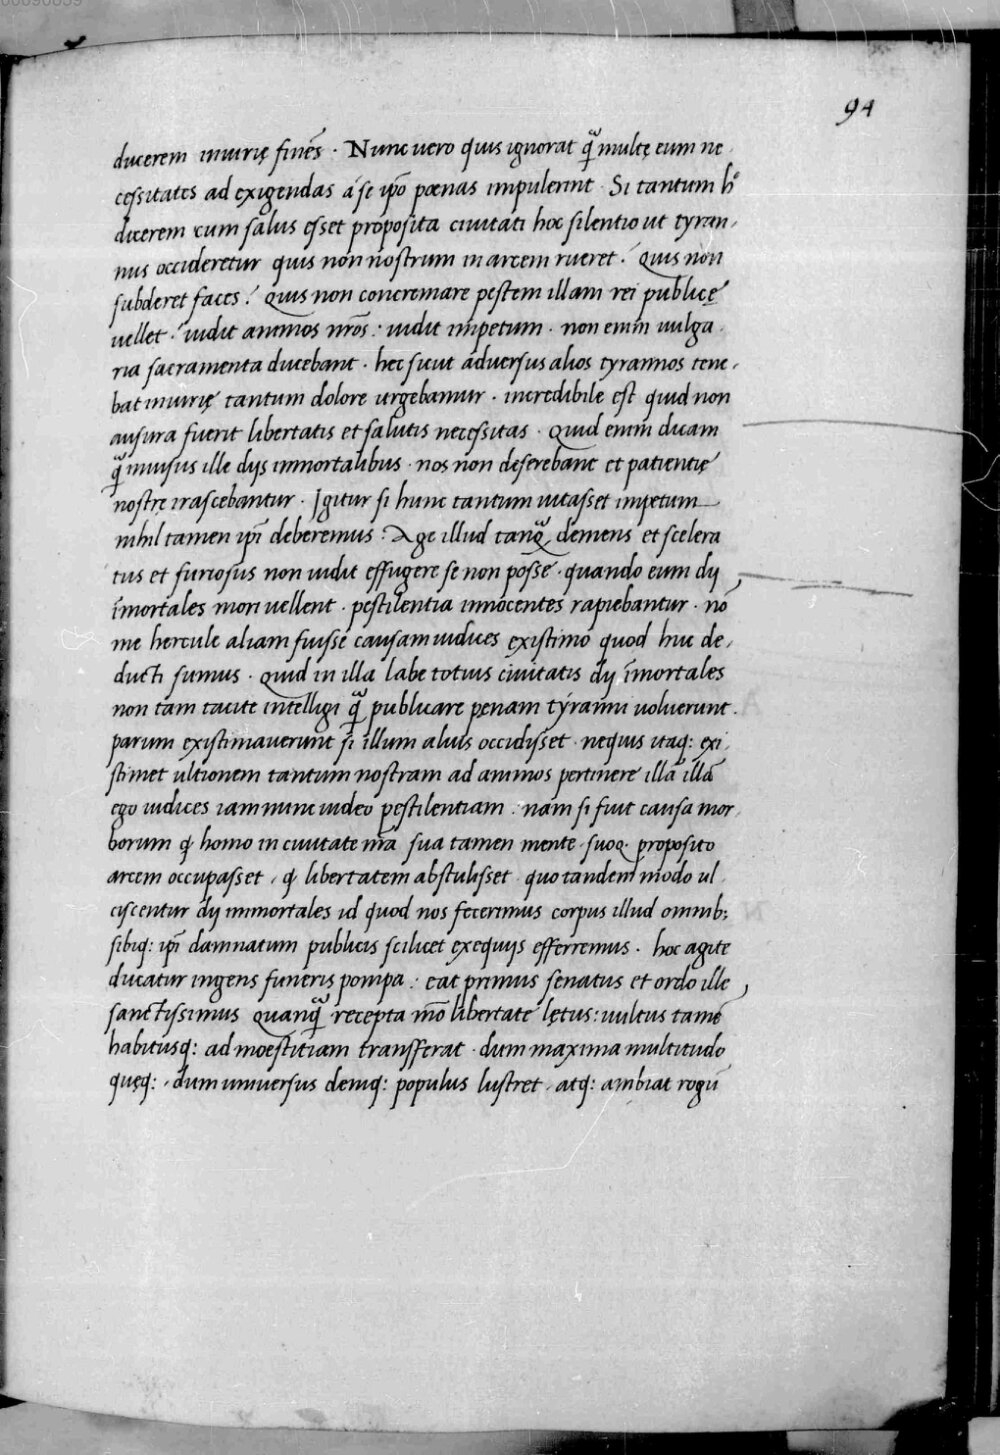 00090099
94
ducerem iniurię finẽs · Nunc uero quis ignorat q̃ multę eum ne,
cessitates ad exigendas á se ip̃o pœnas impulerint · Si tantum h°
dicerem cum salus esset proposita ciuitati hoc silentio ut tyran,
nus occideretur quis non nostrum in arcem rueret? Quis non
subderet faces? Quis non concremare pestem illam rei publicę
uellet? uidit animos nr̃os: uidit impetum · non enim uulga,
ria sacramenta ducebant · hec sicut aduersus alios tyrannos tene,
bat iniurię tantum dolore urgebamur · incredibile est quid non
ausura fuerit libertatis et salutis necessitas · Quid enim dicam
q̃ inuisus ille dijs inmortalibus · nos non deserebant et patientię
nostrę irascebantur · Igitur si hunc tantum uitasset impetum
nihil tamen ip̃i deberemus: Age illud tanq̃ demens et scelera
tus et furiosus non uidit effugere se non posse · quando eum dij
ĩmortales mori uellent · pestilentia innocentes rapiebantur · nõ
me hercule aliam fuisse causam iudices existimo quod huc de,
ducti sumus · Quid in illa labe totius ciuitatis dij ĩmortales
non tam tacite intelligi q̃ publicare pęnam tyranni uoluerunt.
parum existimauerunt si illum aluis occidisset · nequis itaq: exi,
stimet ultionem tantum nostram ad animos pertinere illã illã
ego iudices iam nunc uideo pestilentiam: nam si fuit causa mor,
borum q̣ homo in ciuitate nr̃a sua tamen mente · suoq. proposito
arcem occupasset, q̣ libertatem abstulisset quo tandem modo ul
ciscentur dij immortales id quod nos fecerimus corpus illud omnib;
sibiq: ip̃i damnatum publicis scilicet exequijs efferremus · hoc agite
ducatur ingens funeris pompa: eat primus senatus et ordo ille,
sanctissimus quanq̃ recepta mõ libertate lętus: uultus tamẽ
habitusq: ad moestitiam transfferat · dum maxima multitudo
quęq: · dum uniuersus deniq: populus lustret · atq: ambiat rogũ